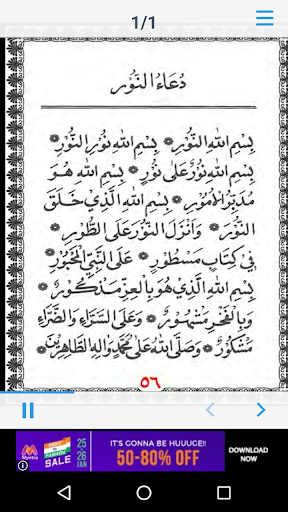 1/1
دُعَاءُ النُّوْر
بِسْمِ اللهِ النُّوْرِ ❋ بِسْمِ اللهِ نُوْرِ النُّوْرِ ❋
بِسْمِ اللهِ نُوْرٌ عَلٰى نُوْرٍ ❋ بِسْمِ اللهِ هُوَ
مُدَبِّرُ الْاُمُوْرِ ❋ بِسْمِ اللهِ الَّذِيْ خَلَقَ
النُّوْرَ ❋ وَاَنْزَلَ النُّوْرَ عَلَى الطُّوْرِ ❋
فِيْ كِتَابٍ مَسْطُوْرٍ ❋ عَلَى النَّبِيِّ الْمَحْبُوْرِ ❋
بِسْمِ اللهِ الَّذِيْ هُوَ بِالْعِزِّ مَذْكُوْرٌ ❋
وَبِالْفَخْرِ مَشْهُوْرٌ ❋ وَعَلَى السَّرَّاءِ وَالضَّرَّاءِ
مَشْكُوْرٌ ❋ وَصَلَّى اللهُ عَلٰى مُحَمَّدٍ وَاٰلِهِ الطَّاهِرِيْنَ ❋
٥٦
Myntra
SALE
25
26
JAN
IT'S GONNA BE HUUUGE!!
50-80% OFF
DOWNLOAD
NOW